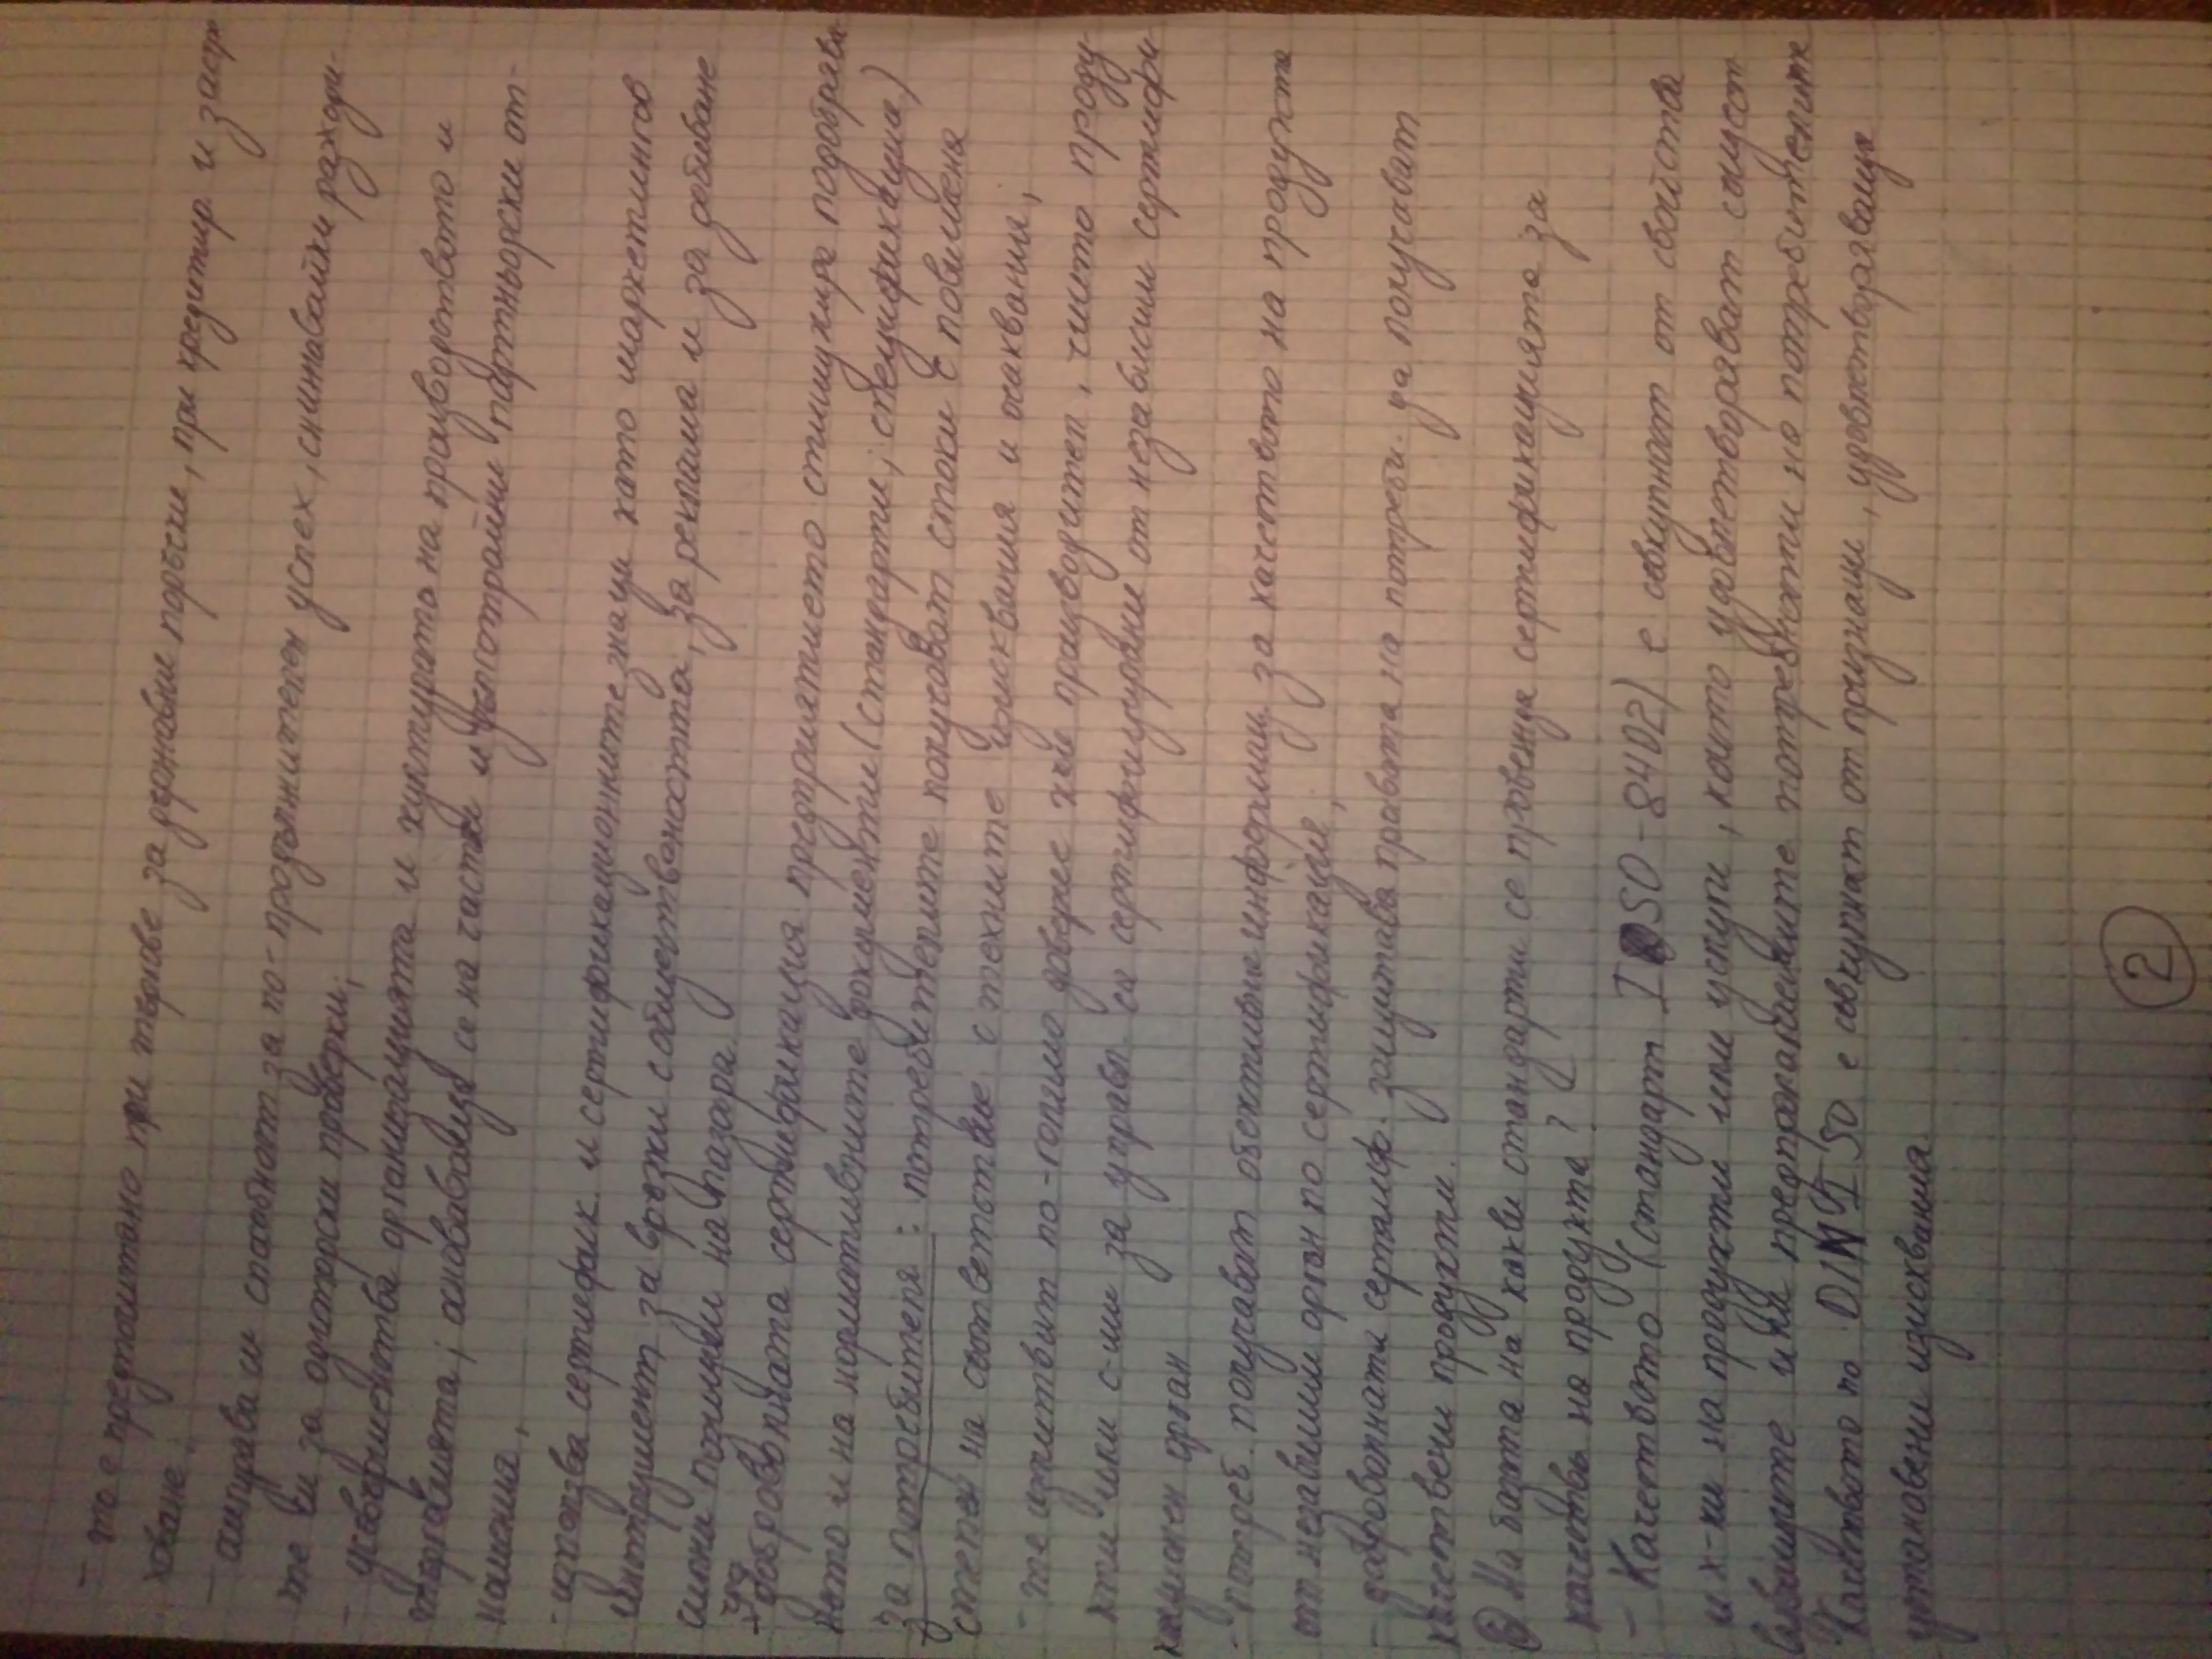 - то е предпочитано при търгове за държавни поръчки, при кредитир. и застр
ховане.
- осигурява си способност за по-продължителен успех, снижавайки разходи-
те си за одиторски проверки;
- усъвършенства организацията и културата на производството и
търговията; основаваща се на частни и дълготрайни партньорски от-
ношения,
- използва сертификата и сертификационните знаци като маркетингов
инструмент за връзки с обществеността, за реклама и за добиване
силни позиции на пазара.
- чрез доброволната сертификация предприятието стимулира подобрява
нето и на нормативните документи (стандарти; спецификация)
За потребителя: потребителите получават стоки с повишена
степен на съответствие с техните изисквания и очаквания,
- те изпитват по-голямо доверие към производител, чиито проду-
кти и/или с-ми за управл. са сертифицирани от независим сертифи
кационен орган
- потреб. получават обективна информац. за качеството на продукта
от независим орган по сертификация,
- доброволната сертиф. защитава правата на потреб. да получават
качествени продукти.
② На базата на какви стандарти се провежда сертификацията за
качество на продукта?
- Качеството (стандарт ISO-8402) е съвкупност от свойства
и х-ки на продукти или услуги, които удовлетворяват същест
вуващите или предполагаемите потребности на потребителите
Качеството по DIN ISO е съвкупност от признаци, удовлетворяващи
установени изисквания.
②